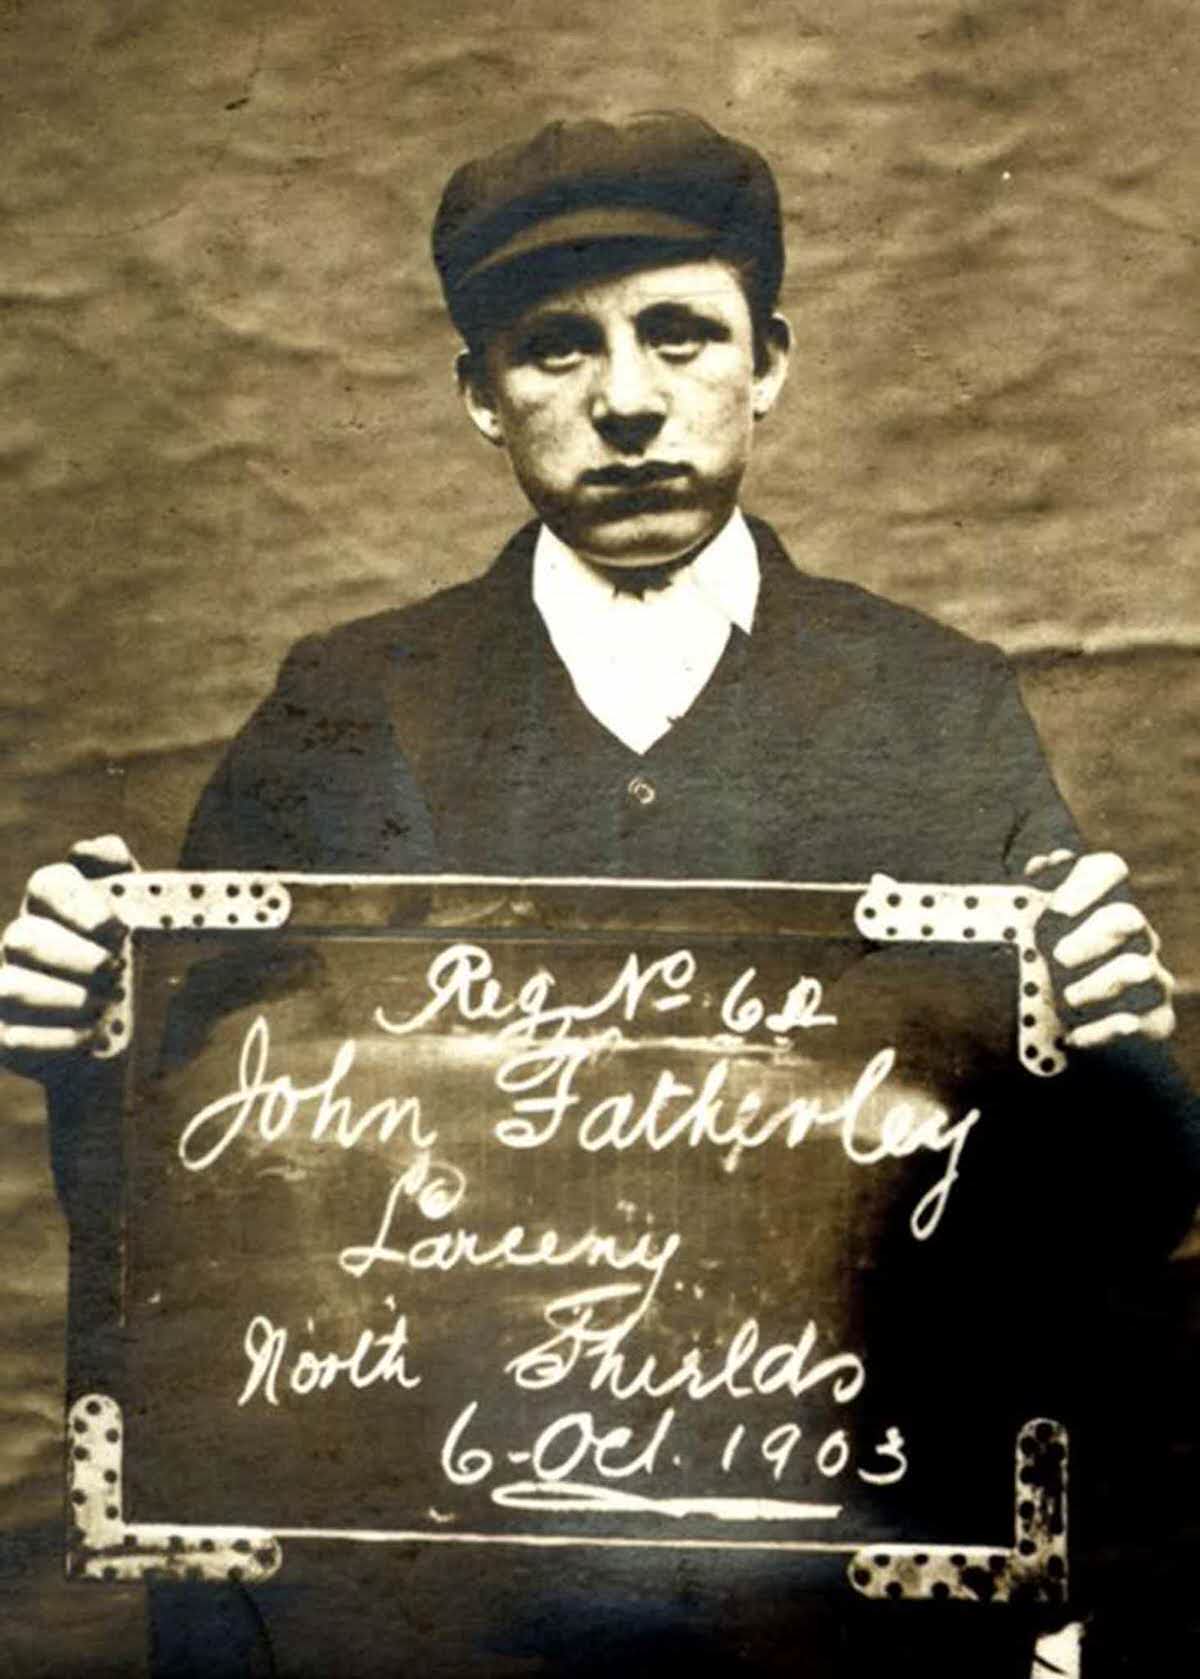 Reg. No. 62
John Fatherley
Larceny
North Shields
6-Oct. 1903